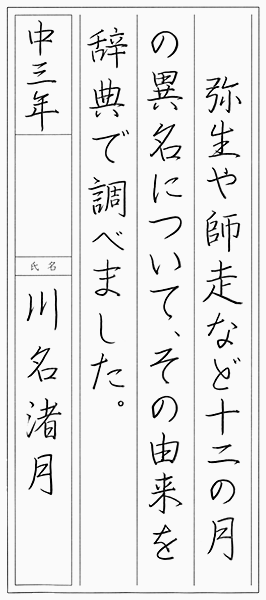 弥生や師走など十二の月
の異名について、その由来を
辞典で調べました。
中三年
氏名
川名渚月